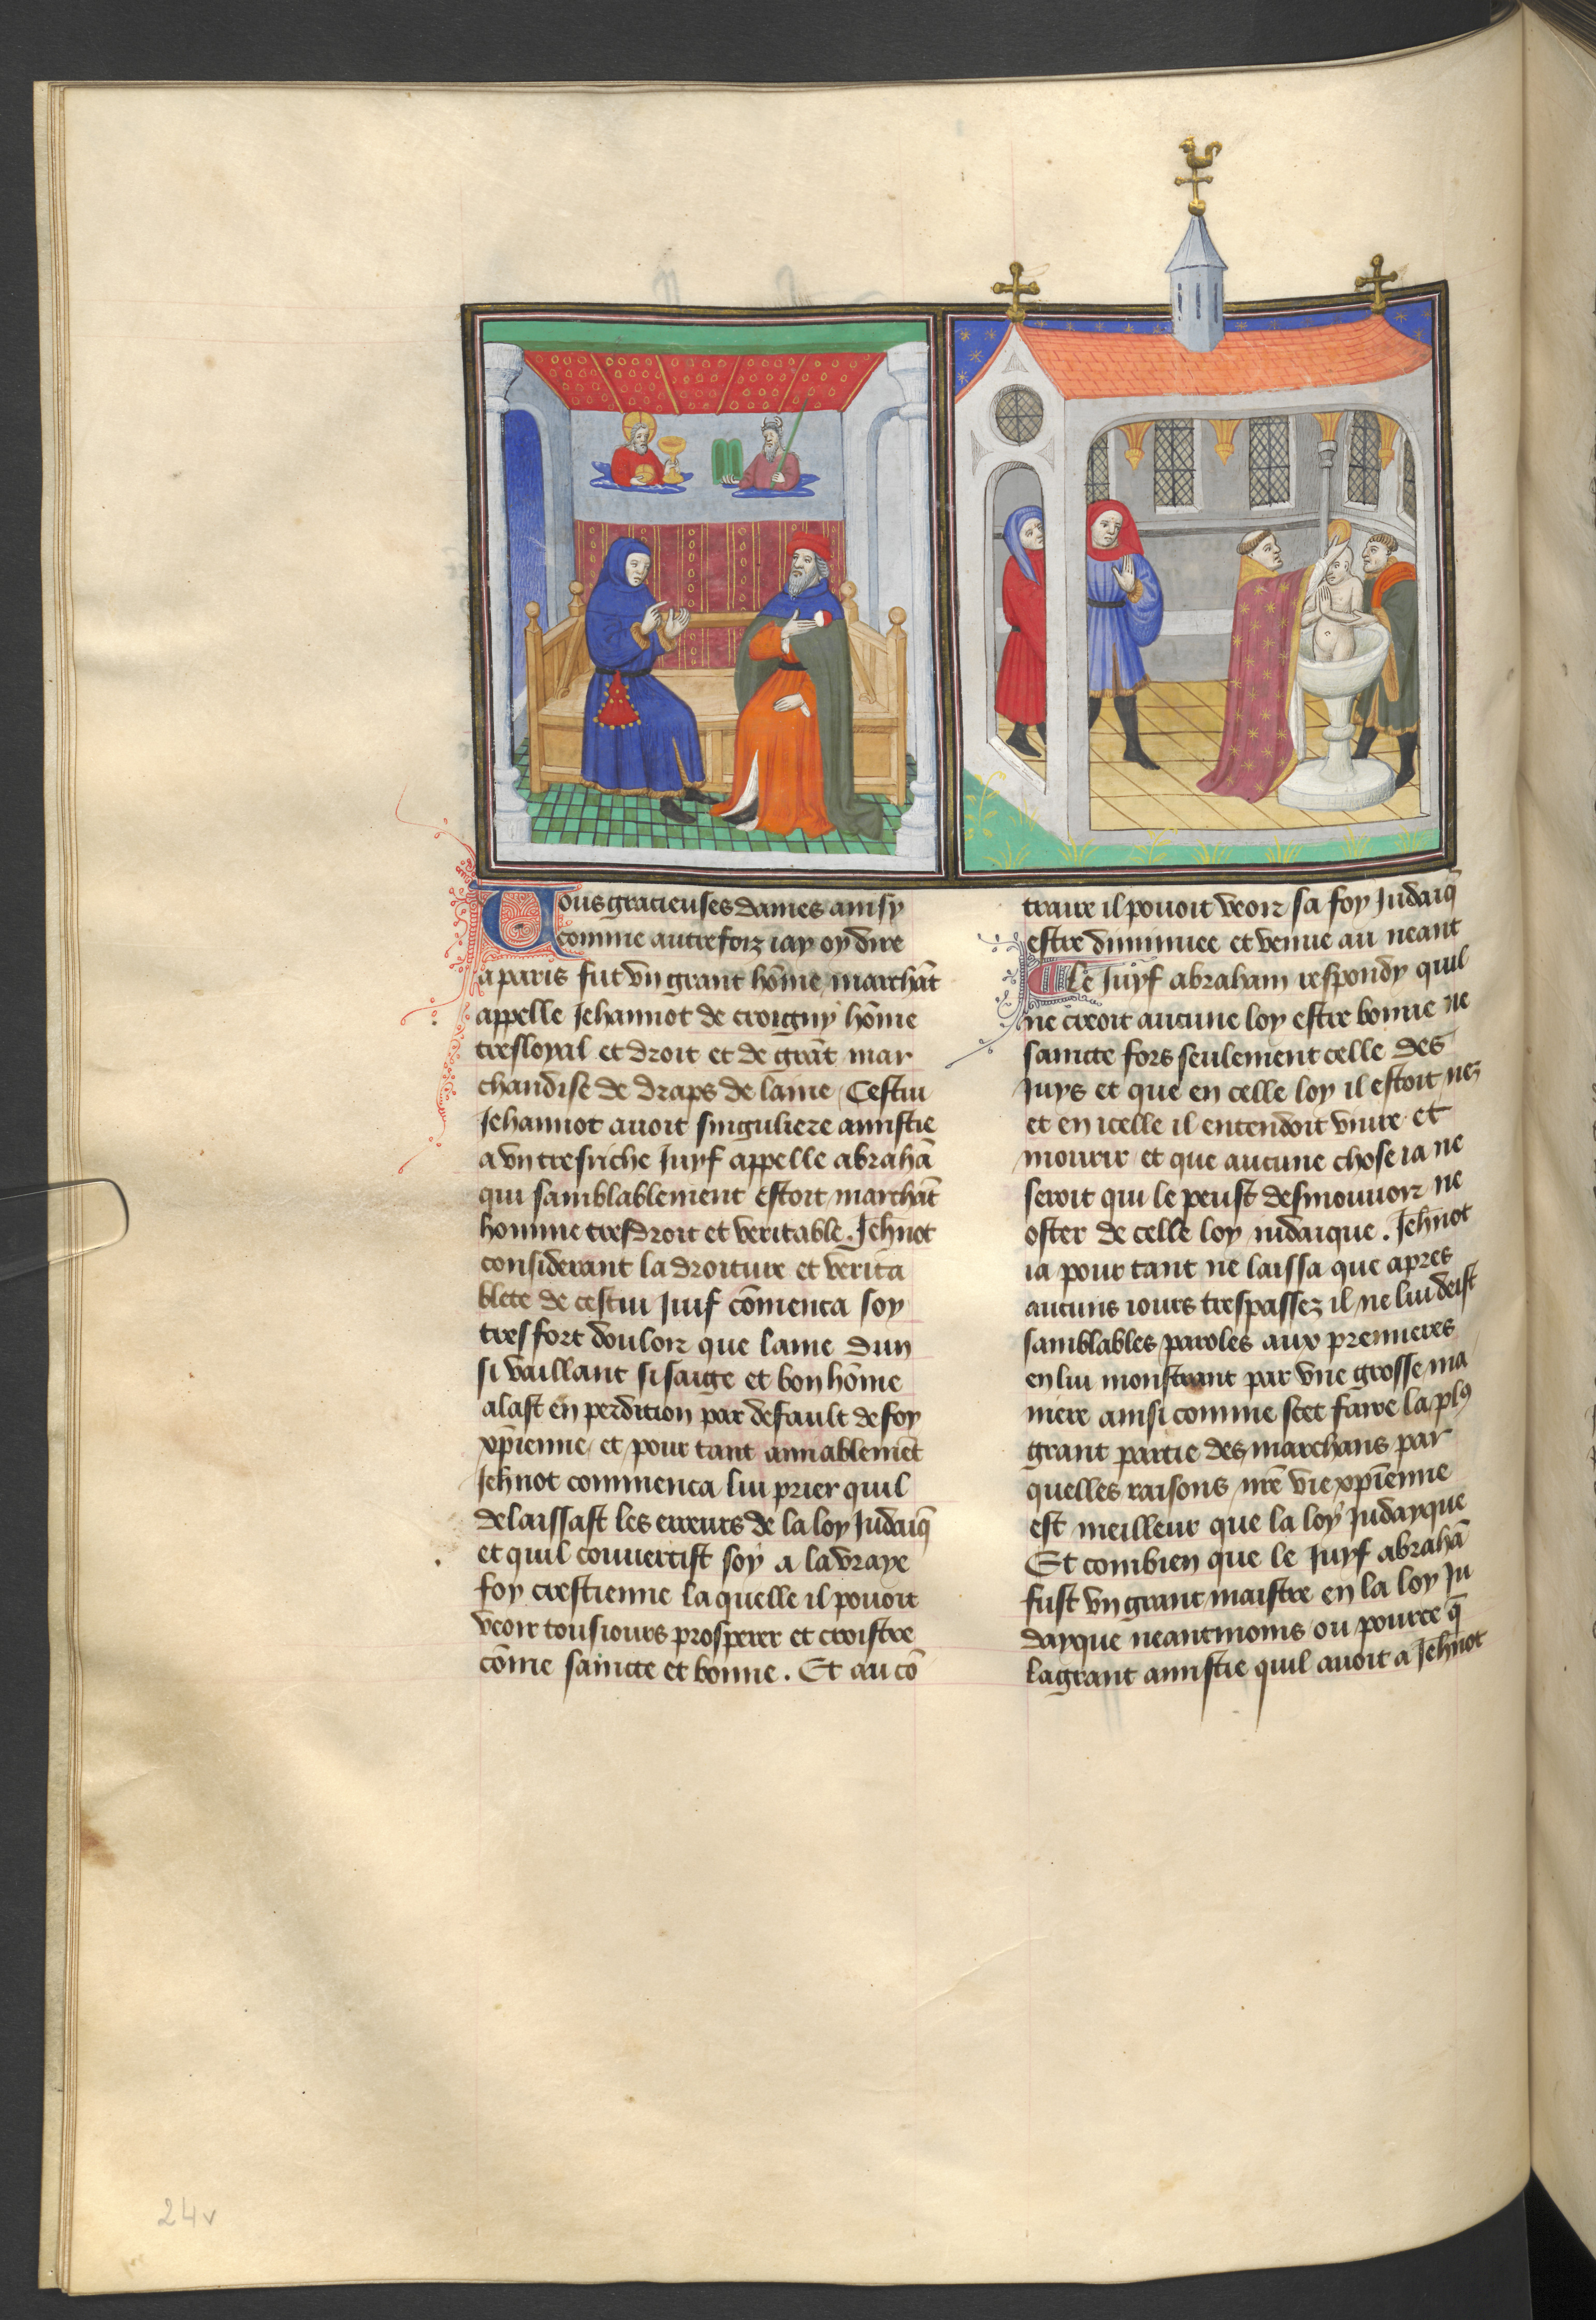 Vous gracieuses dames ainsy
comme autrefoiz iay oy dire
a paris fut vn grant hōme marchāt
appelle Jehannot de croigny hōme
tresloyal et droit et de grāt mar
chandise de draps de laine / Cestui
Jehannot auoit singuliere amistie
a vn tresriche Juyf appelle abrahā
qui samblablement estoit marchāt
homme tresdroit et veritable. Jeh̄not
considerant la droiture et verita
blete de cestui Juif cōmenca soy
tresfort douloir que lame dun
si vaillant si saige et bon hōme
alast en perdition par default de foy
xp̄ienne / et pour tant amiablemēt
Jeh̄not commenca lui prier quil
delaissast les erreurs de la loy Judaiq̄
et quil conuertist soy a la vraye
foy crestienne la quelle il pouoit
veoir tousiours prosperer et croistre
cōme saincte et bonne. Et au cō
traire il pouoit veoir sa foy Judaiq̄
estre diminuee et venue au neant
Le Juyf abraham respondy quil
ne creoit aucune loy estre bonne ne
saincte fors seulement celle des
Juys et que en celle loy il estoit nez
et en icelle il entendoit viure et
mourir / et que aucune chose ia ne
seroit qui le peust desmouuoir ne
oster de celle loy iudaique. Jeh̄not
ia pour tant ne laissa que apres
aucuns iours trespassez il ne lui deist
samblables paroles aux premieres
en lui monstrant par vne grosse ma
niere ainsi comme scet faire la plꝰ
grant partie des marchans par
quelles raisons nr̄e vie xp̄ienne
est meilleur que la loy Judayque
Et combien que le Juyf abrahā
fust vn grant maistre en la loy Ju
dayque neantmoins ou pource q̄
la grant amistie quil auoit a Jeh̄not
24v